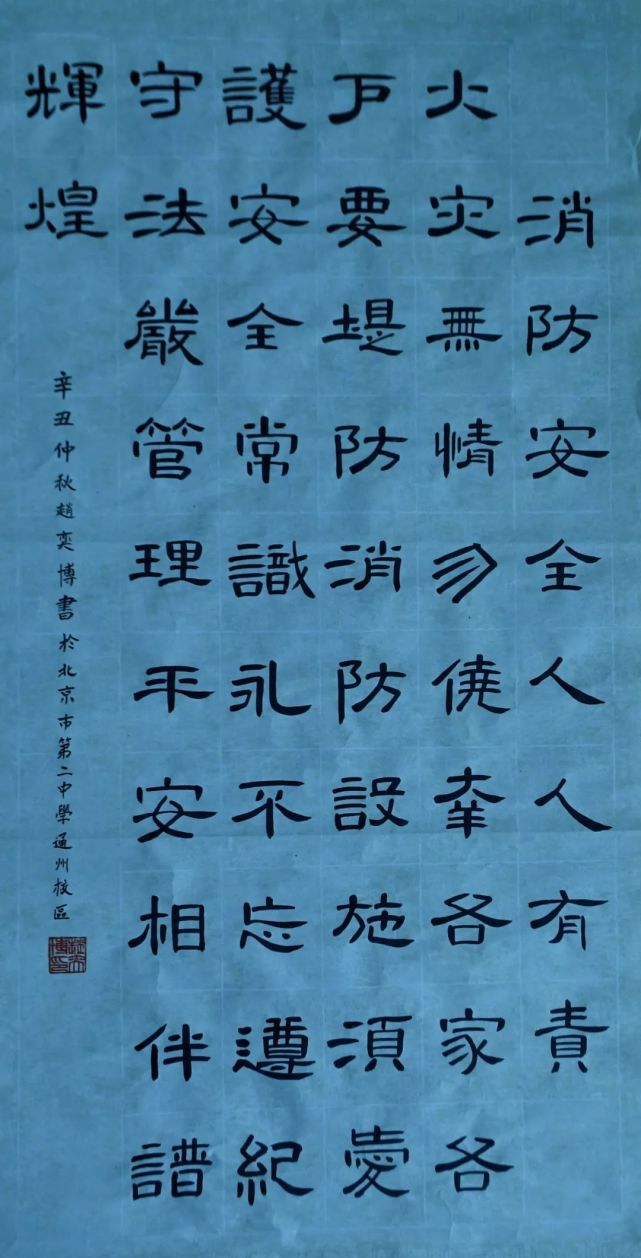 消防安全人人有責
火灾無情勿僥幸各家各
戶要堤防消防設施須愛
護安全常識永不忘遵紀
守法嚴管理平安相伴譜
輝煌
辛丑仲秋趙奕博書於北京市第二中學通州校區